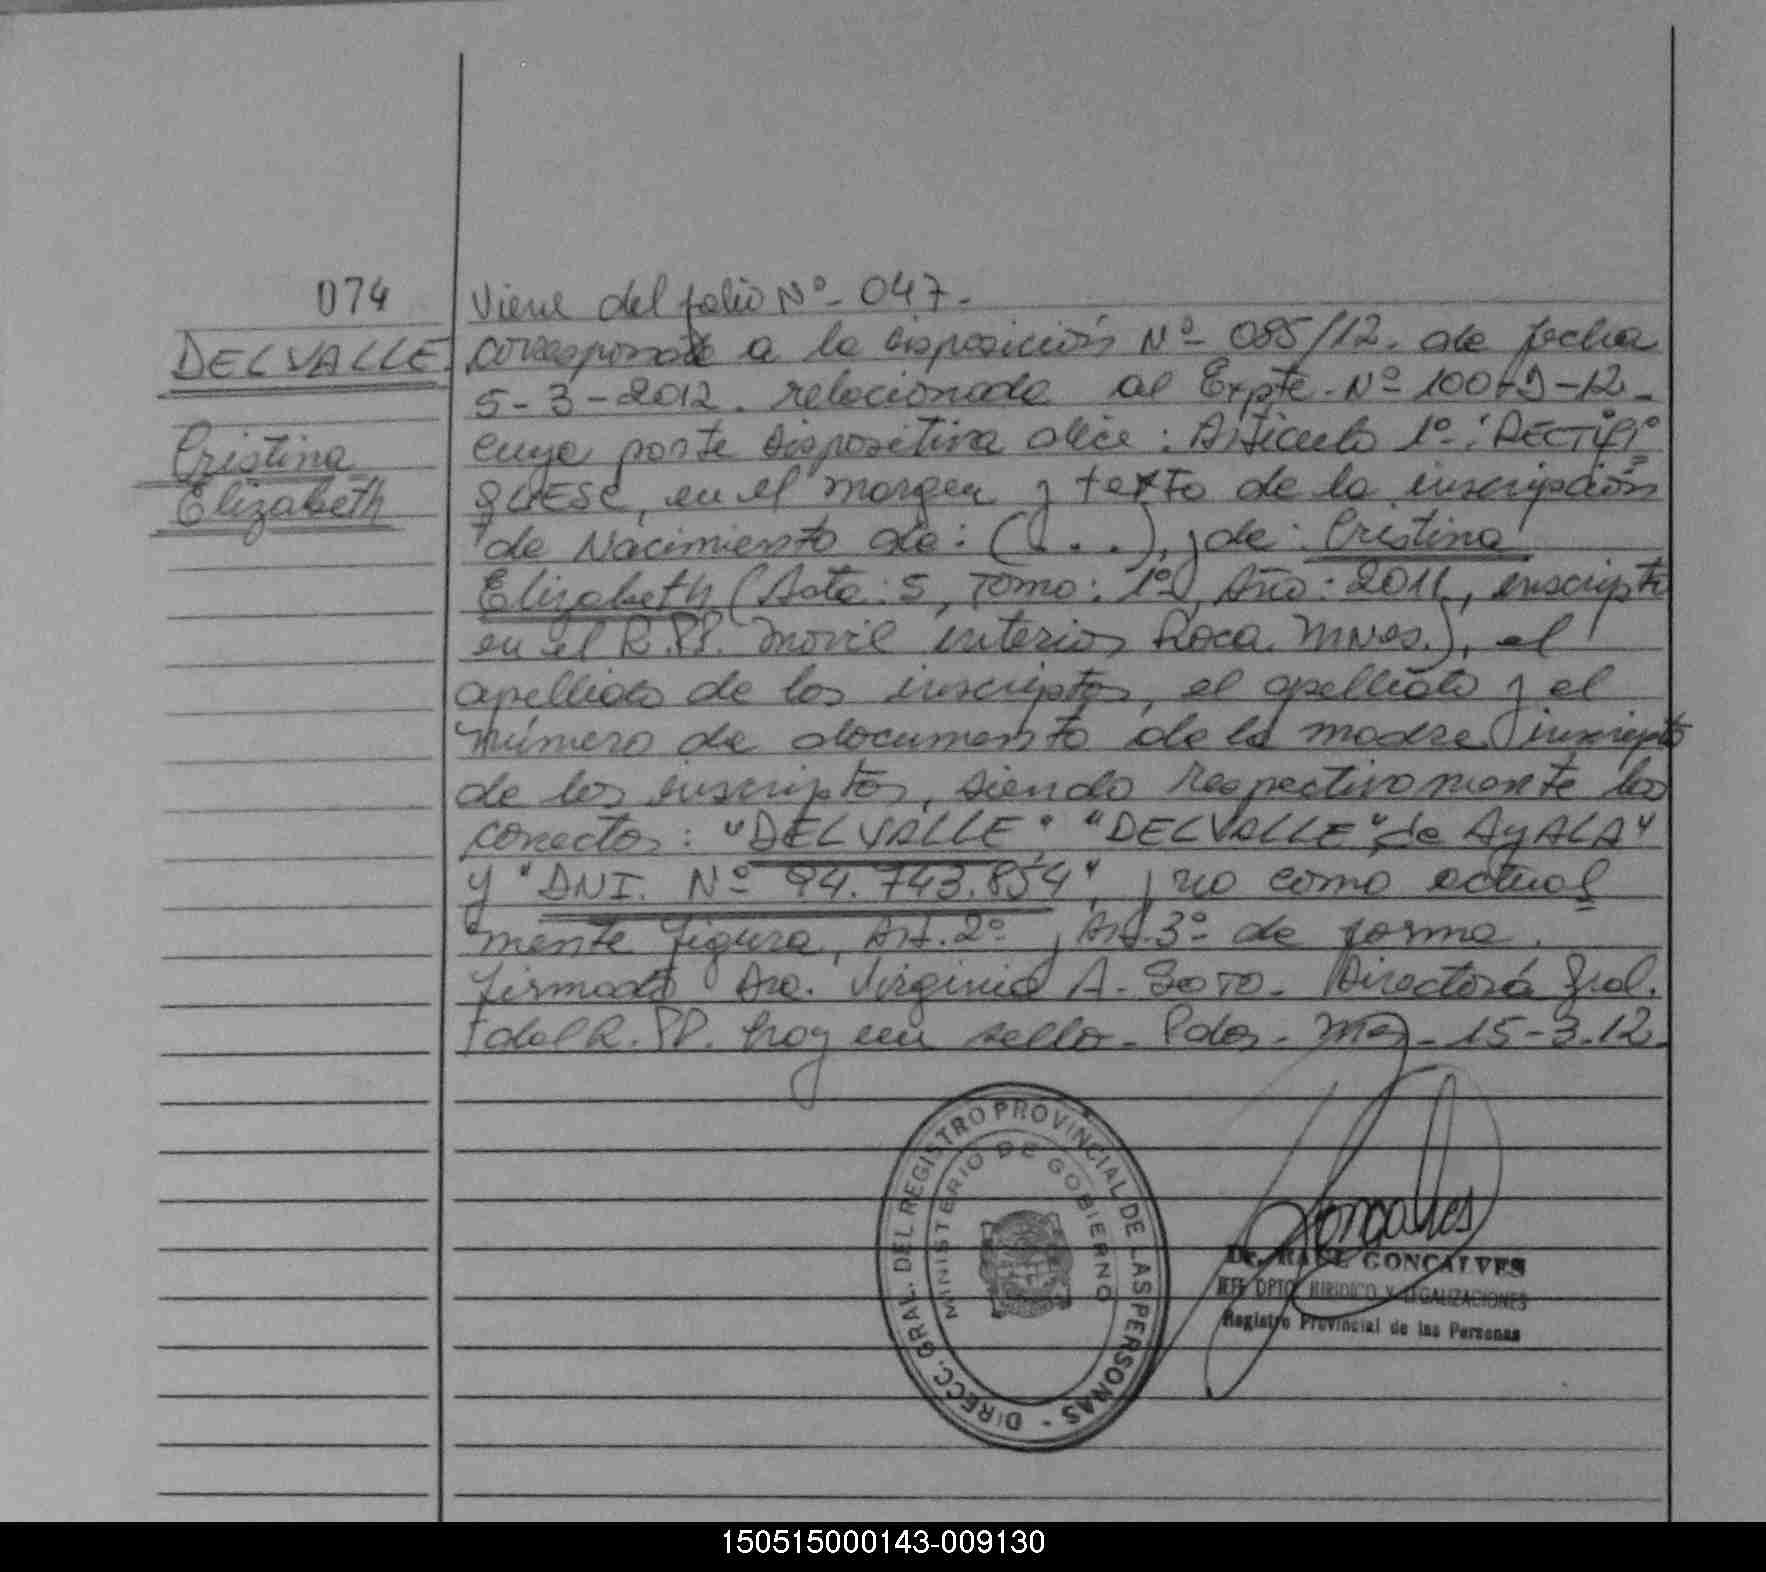 074
DELVALLE
Cristina
Elizabeth
Viene del folio Nº- 047.-
corresponde a la disposición Nº- 085/12. de fecha
5-3-2012. relacionada al Expte. Nº 100-D-12-
cuya parte dispositiva dice: Articulo 1º-: RECTIFI
QUESE, en el margen y texto de la inscripción
de Nacimiento de: (...), y de: Cristina
Elizabeth (Acta: 5, Tomo: 1º, Año: 2011, inscripta
en el R.PP. Movil interior Roca. Mnes.), el
apellido de los inscriptos, el apellido y el
número de documento de la madre inscripto
de los inscriptos, siendo respectivamente los
correctos: "DELVALLE", "DELVALLE" de AYALA"
y "DNI. Nº 94.743.854", y no como actual
mente figura, Art. 2º y Art. 3º de forma.
firmado Dra. Virginia A. SOTO. Directora Gral.
del R.PP. hay un sello. Pdas. Mnes. 15-3.12.
DIRECC. GRAL. DEL REGISTRO PROVINCIAL DE LAS PERSONAS -
MINISTERIO DE GOBIERNO
Goncalves
Dr. RAUL GONCALVES
JEFE DPTO. JURIDICO Y LEGALIZACIONES
Registro Provincial de las Personas
150515000143-009130